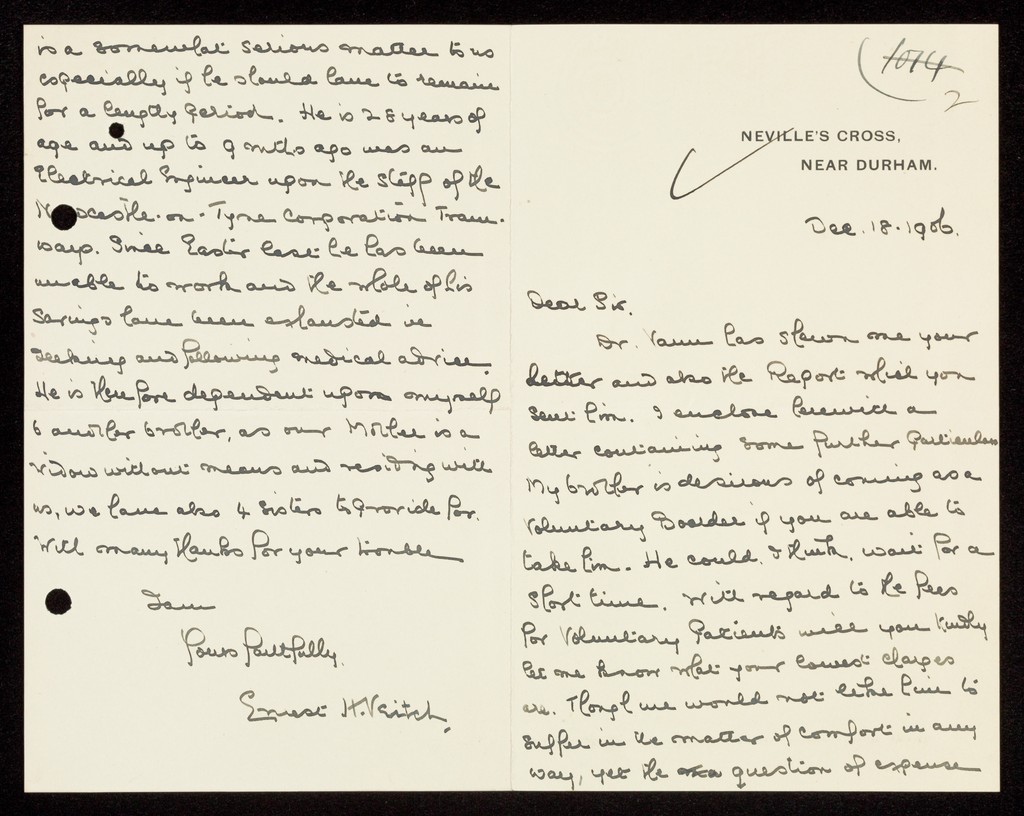 1074
2
NEVILLE'S CROSS,
NEAR DURHAM.
Dec. 18. 1906.
Dear Sir,
Dr. Vann has shewn me your
letter and also the Report which you
sent him. I enclose herewith a
letter containing some further particulars
My brother is desirous of coming as a
Voluntary Boarder if you are able to
take him. He could, I think, wait for a
short time. With regard to the fees
for Voluntary Patients will you kindly
let me know what your lowest charges
are. Though we would not like him to
suffer in the matter of comfort in any
way, yet the question of expense
is a somewhat serious matter to us
especially if he should have to remain
for a lengthy period. He is 28 years of
age and up to 9 mths ago was an
Electrical Engineer upon the staff of the
Newcastle-on-Tyne Corporation Tram-
ways. Since Easter last he has been
unable to work and the whole of his
savings have been exhausted in
seeking and following medical advice.
He is therefore dependent upon myself
& another brother, as our Mother is a
widow without means and residing with
us, we have also 4 sisters to provide for.
With many thanks for your trouble
I am
Yours faithfully,
Ernest H. Veitch.